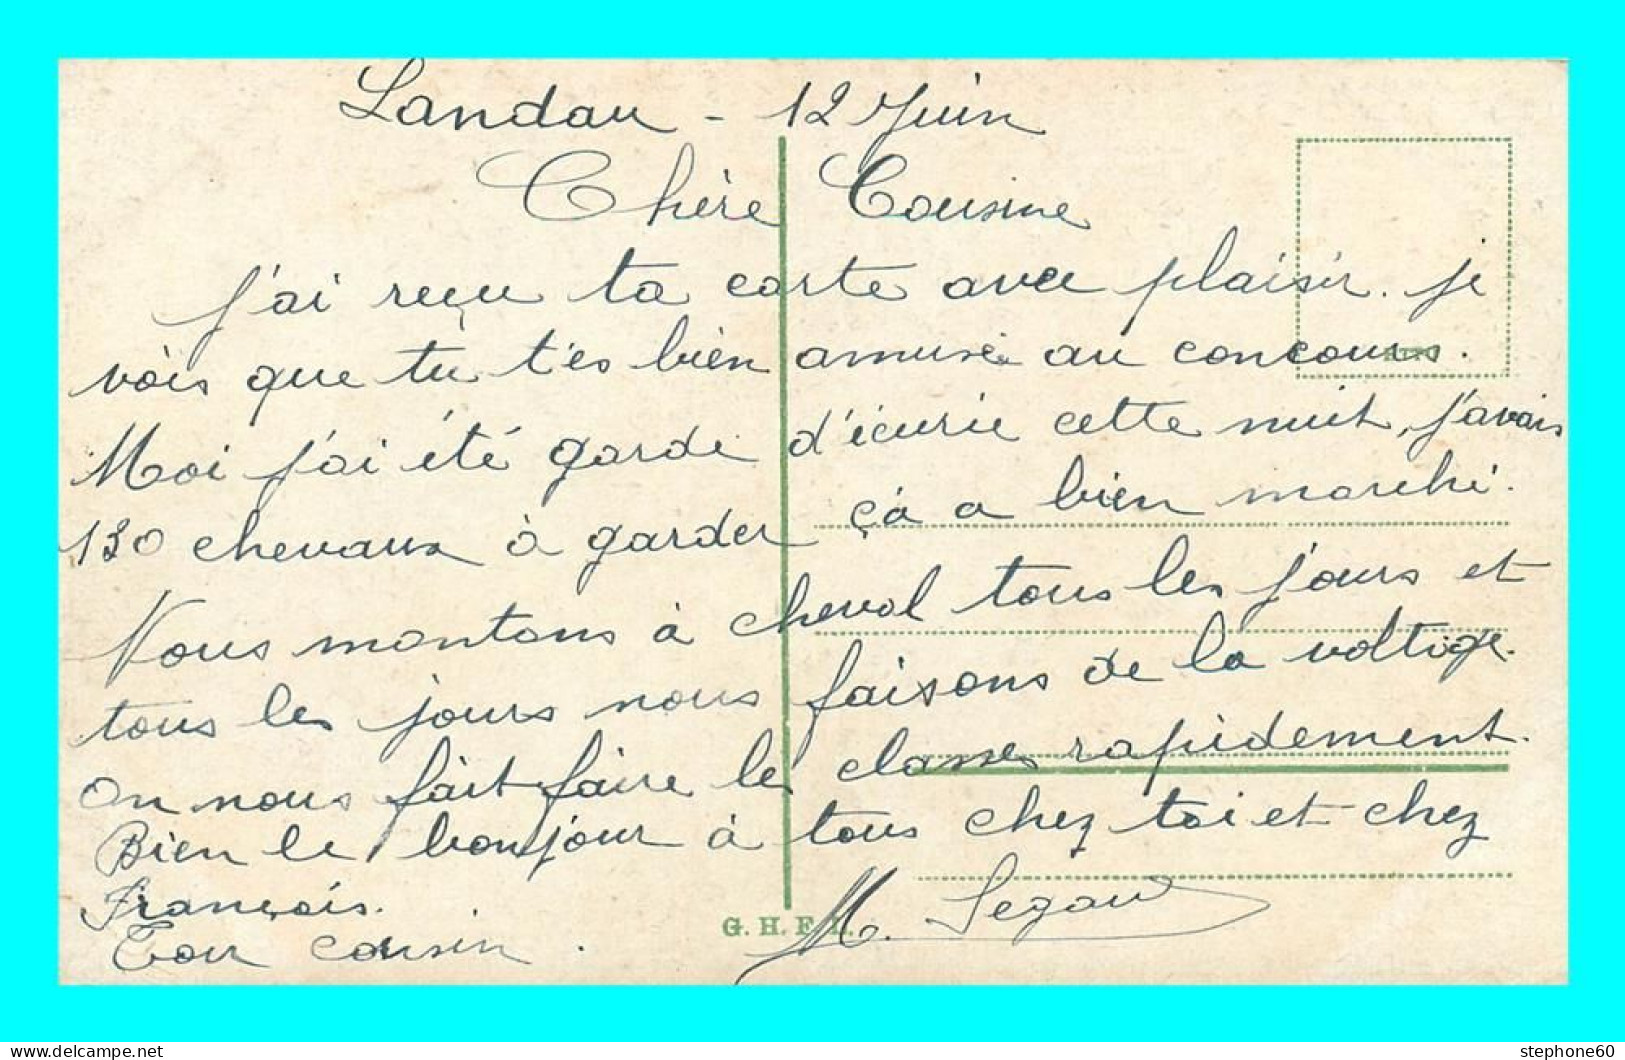 Landau - 12 Juin
Chère Cousine
J'ai reçu ta carte avec plaisir. je
vois que tu t'es bien amusé au concours.
Moi j'ai été garde d'écurie cette nuit, j'avais
130 chevaux à garder çà a bien marché.
Nous montons à cheval tous les jours et
tous les jours nous faisons de la voltige.
On nous fait faire les classes rapidement.
Bien le bonjour à tous chez toi et chez
François.
Ton cousin.
M.
G. H. F. L.
delcampe.net
stephone60